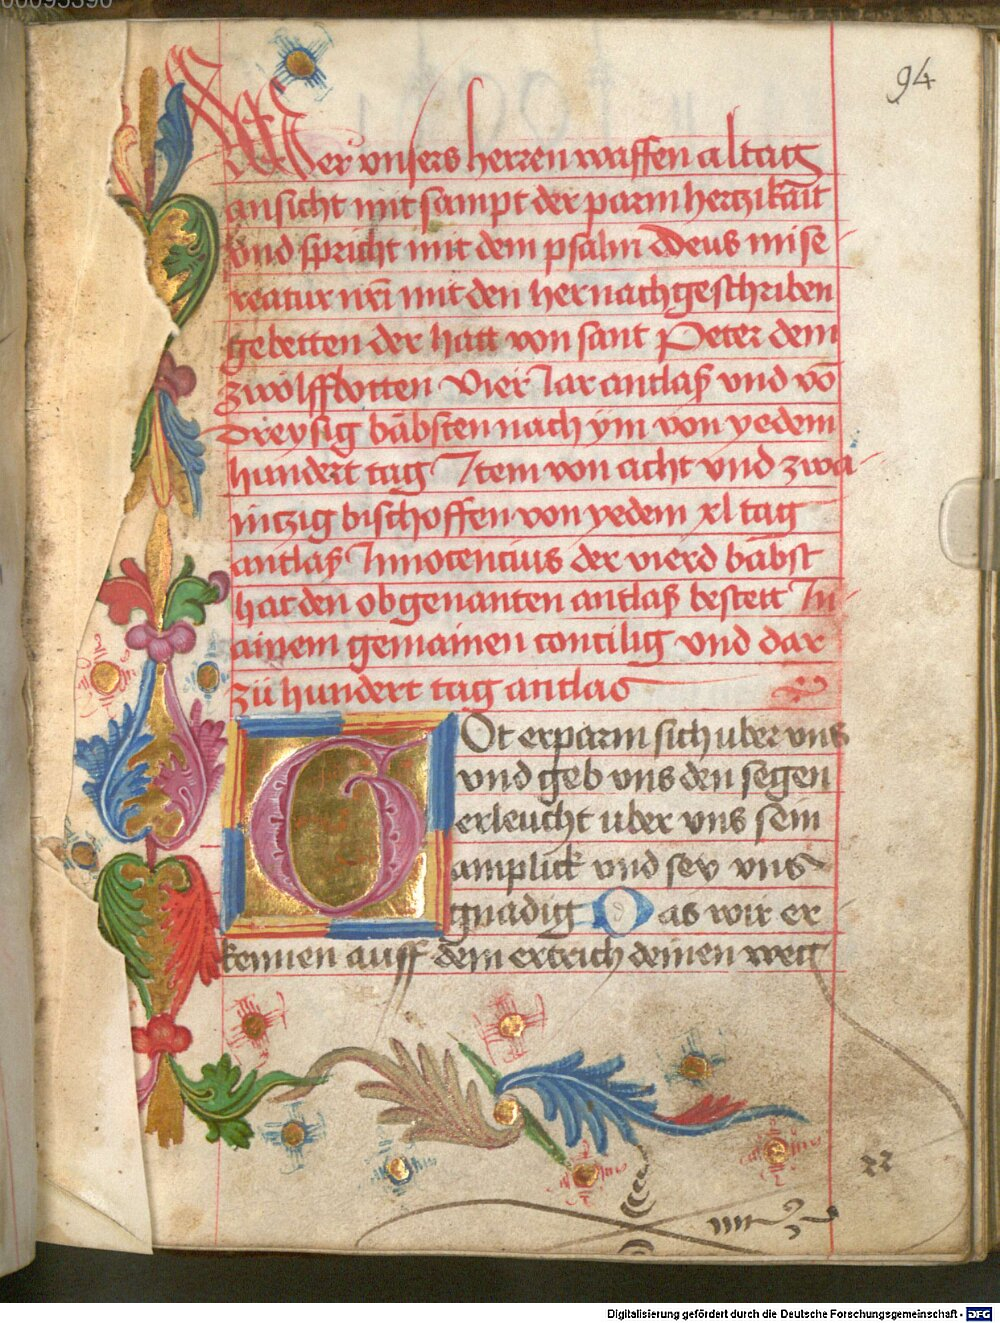 94
Wer vnsers herren waffen altag
ansicht mit sampt der parmhertzikait
vnd spricht mit dem psalm Deus mise-
reatur nr̄i mit den hernachgeschriben
gebetten der hatt von sant Peter dem
zwölffbotten vier Jar antlaß vnd vō
dreysig bäbsten nach ym von yedem
hundert tag Jtem von acht vnd zwa-
intzig bischoffen von yedem xl tag
antlaß Jnnocencius der vierd bäbst
hat den obgenanten antlaß bestett Jn
ainem gemainen concilig vnd dar
zü hundert tag antlas
Got erparm sich uber vns
vnd geb vns den segen
erleucht uber vns sein
amplick vnd sey vns
gnädig Das wir er
kennen auff dem ertrich deinen weg
Digitalisierung gefördert durch die Deutsche Forschungsgemeinschaft - DFG